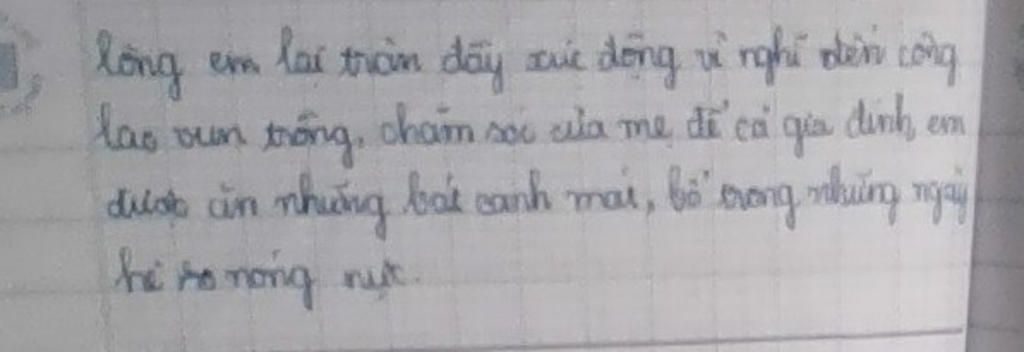 lòng em lại tràn đầy xúc động vì nghĩ đến công
lao vun trồng, chăm sóc của mẹ để cả gia đình em
được ăn những bát canh mát, bổ trong những ngày
hè nóng nực.